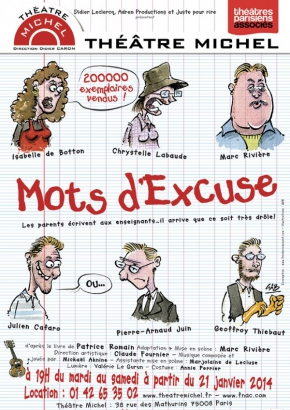 Didier Leclercq, Adren Productions et Juste pour rire
présentent
THÉÂTRE
MICHEL
DIRECTION DIDIER CARON
théâtres
parisiens
associés
THÉÂTRE MICHEL
200000
exemplaires
vendus !
Isabelle de Botton
Chrystelle Labaude
Marc Rivière
Mots d'Excuse
Les parents écrivent aux enseignants...il arrive que ce soit très drôle!
OU...
Julien Cafaro
Pierre-Arnaud Juin
Geoffroy Thiebaut
d'après le livre de Patrice Romain Adaptation & Mise en scène : Marc Rivière
Direction artistique : Claude Fournier - Musique composée et
jouée par : Mickaël Aknine - Assistante mise en scène : Marjolaine de Lecluse
Lumière : Valérie Le Guran - Costume : Annie Perrier
à 19H du mardi au samedi à partir du 21 janvier 2014
Location : 01 42 65 35 02 www.theatremichel.fr - www.fnac.com
Théâtre Michel : 38 rue des Mathurins 75008 Paris